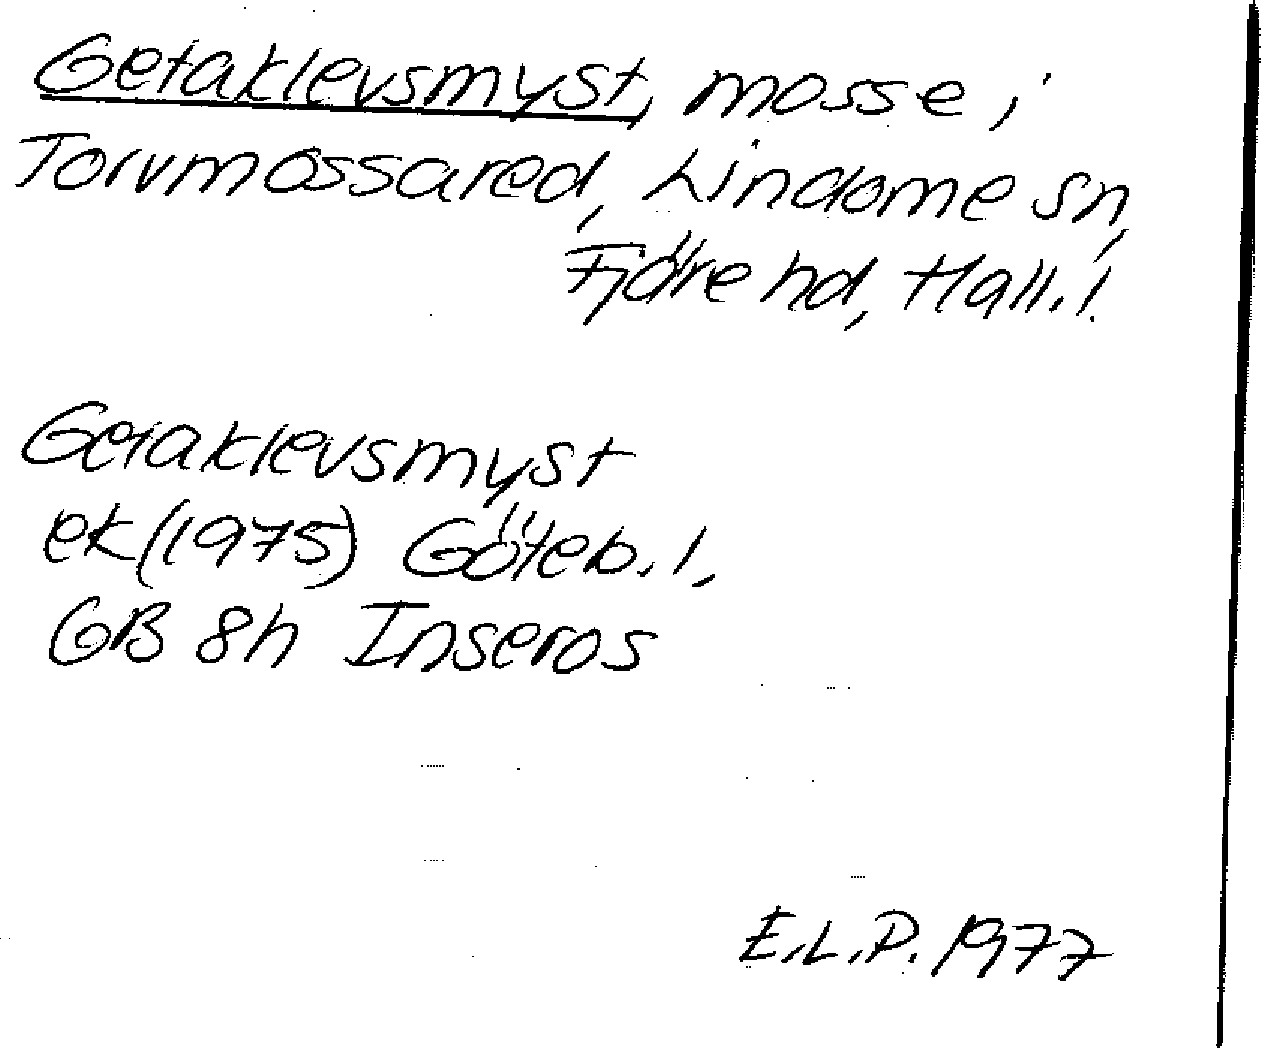 Getaklevsmyst, mosse i
Torvmossared, Lindome sn,
Fjäre hd, Hall.!
Getaklevsmyst
ek (1975) Göteb. l,
GB 8h Inseros
E.L.P. 1977